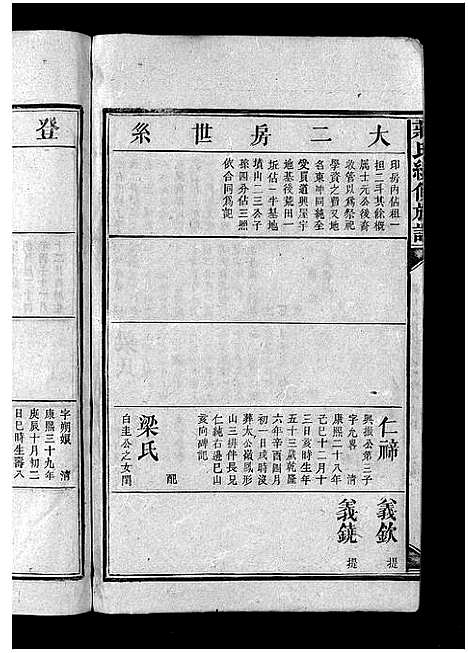 大二房世系
印房內佔租一
担二斗其餘概
属士元公後裔
收管以爲祭祀
學資之費又地
名東冲同純全
受買道興屋宇
地基後荒田一
坵佔一半基地
墳山二三公子
孫四分佔三照
依合同爲記
仁禘
興振公第三子
字九畧 清
康熙二十八年
己巳十二月十
三日亥時生年
五十三歲乾隆
六年辛酉四月
初一日戌時沒
葬太公嶺鳳形
山三排伴長兄
仁純右邊巳山
亥向碑記
配
梁氏
白圭公之女閏
義欽 提
義鐃 提
卷
字朔娘 清
康熙三十九年
庚辰十月初二
日巳時生壽八
氏續修族譜